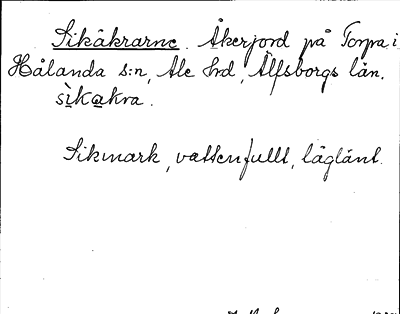 Sikåkrarne. Åkerjord på Torpa i
Hålanda s:n, Ale hd, Älfsborgs län.
sìkakra.
Sikmark, vattenfullt, låglänt.